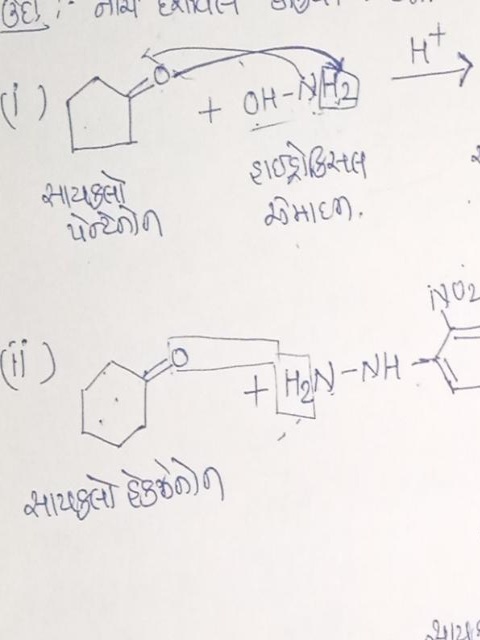 ઉદા :- નીચે
(i) O + OH-NH2 H+
સાયક્લો
પેન્ટેનોન
હાઈડ્રોક્સિલ
એમાઇન.
(ii) O + H2N-NH- NO2
સાયક્લો હેક્ઝેનોન